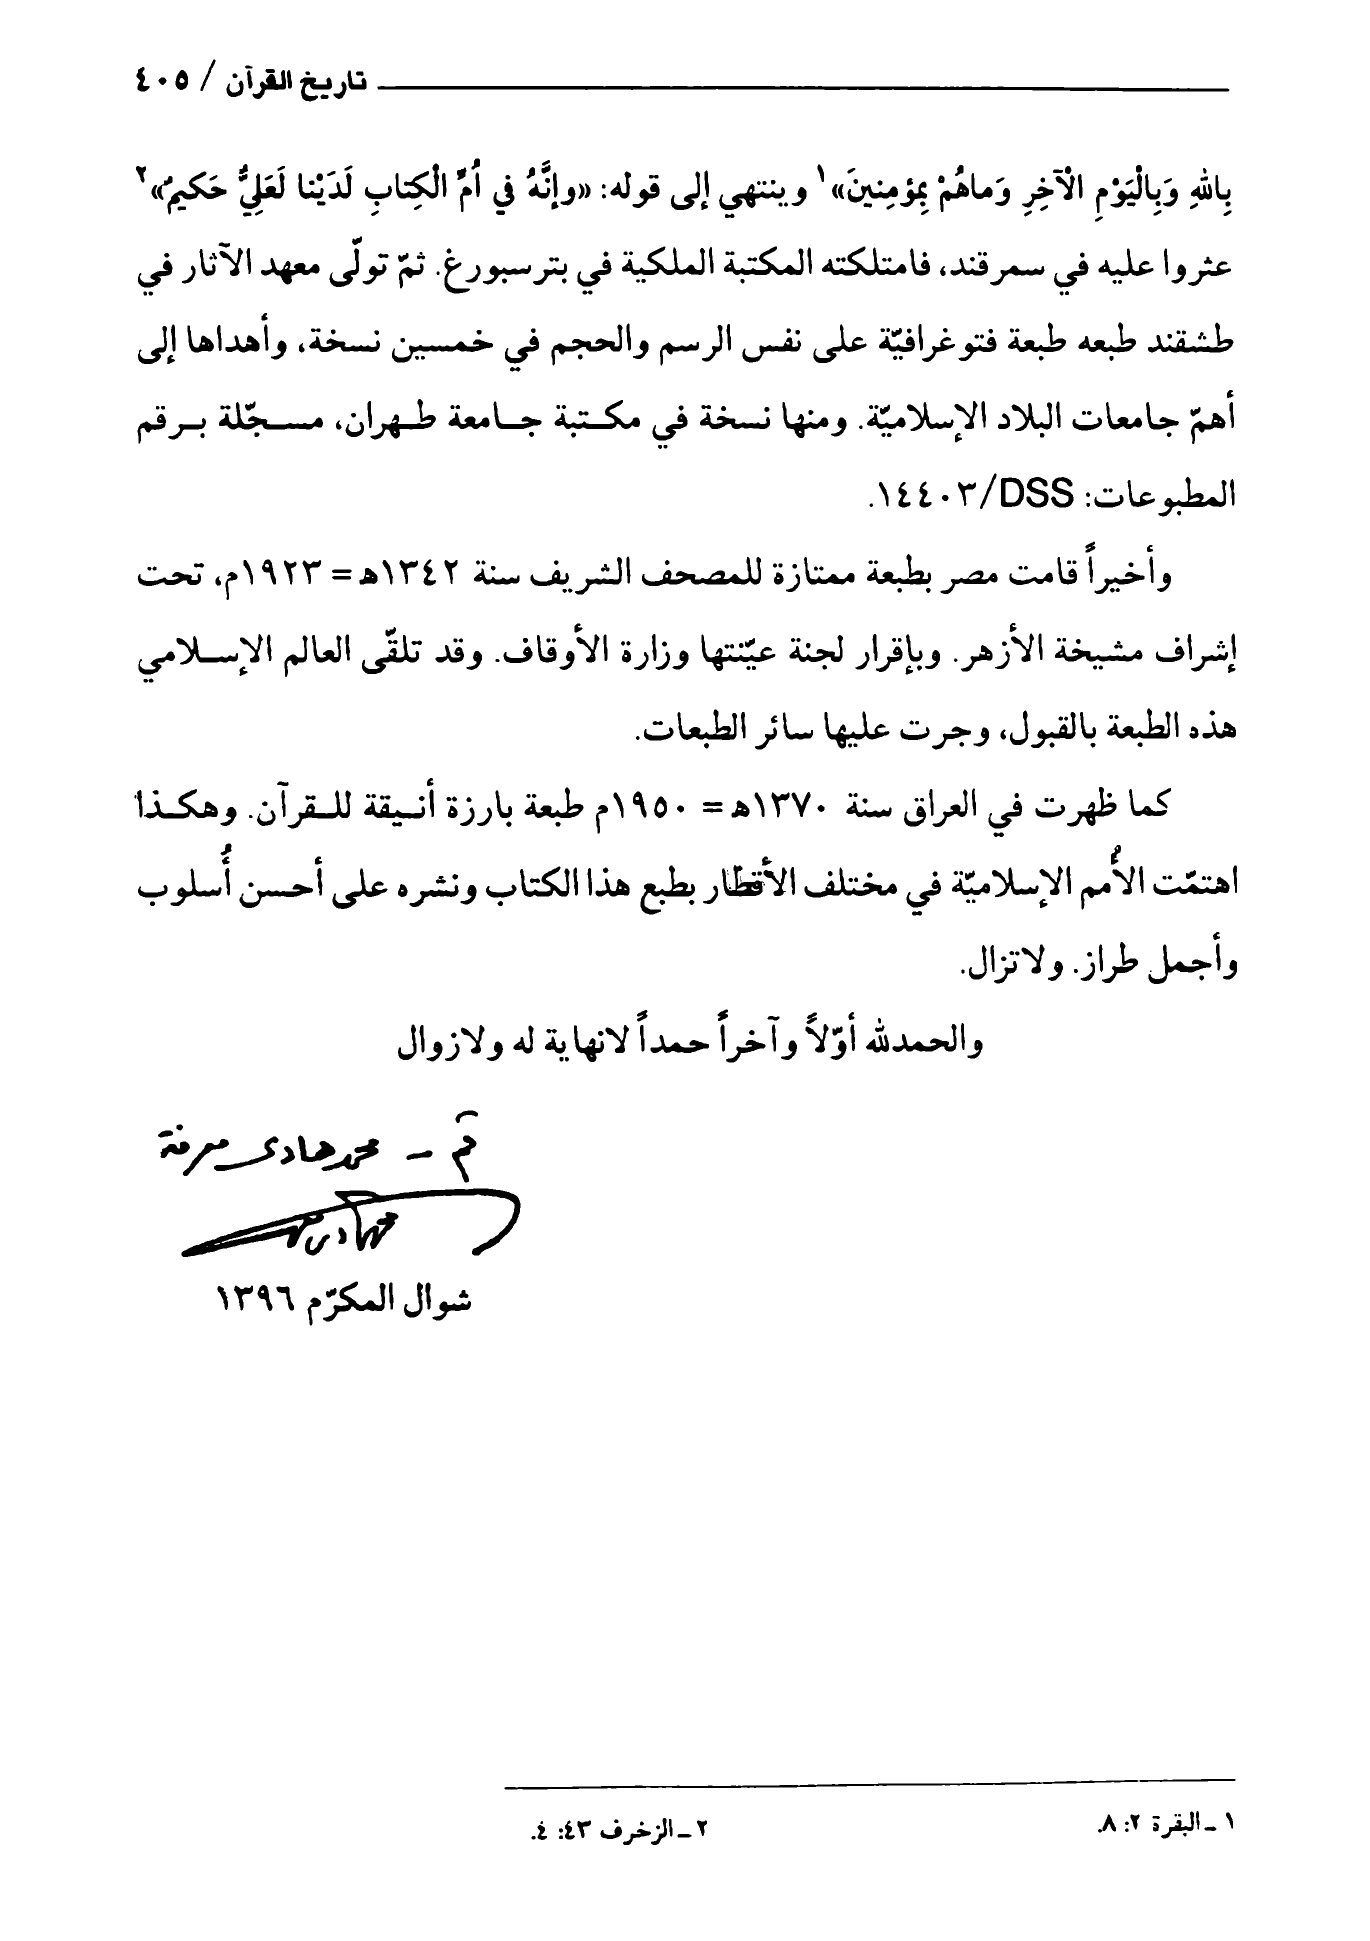 تاريخ القرآن / ٤٠٥
بِاللهِ وَبِالْيَوْمِ الْآخِرِ وَماهُمْ بِمؤمِنينَ»١ وينتهي إلى قوله: «وإنَّهُ في اُمِّ الْكِتابِ لَدَيْنا لَعَلِيٌّ حَكيمٌ»٢
عثروا عليه في سمرقند، فامتلكته المكتبة الملكية في بترسبورغ. ثمّ تولّى معهد الآثار في
طشقند طبعه طبعة فتوغرافيّة على نفس الرسم والحجم في خمسين نسخة، وأهداها إلى
أهمّ جامعات البلاد الإسلاميّة. ومنها نسخة في مكتبة جامعة طهران، مسجّلة برقم
المطبوعات: DSS/١٤٤٠٣.
وأخيراً قامت مصر بطبعة ممتازة للمصحف الشريف سنة ١٣٤٢ه‍ = ١٩٢٣م، تحت
إشراف مشيخة الأزهر. وبإقرار لجنة عيّنتها وزارة الأوقاف. وقد تلقّى العالم الإسلامي
هذه الطبعة بالقبول، وجرت عليها سائر الطبعات.
كما ظهرت في العراق سنة ١٣٧٠ه‍ = ١٩٥٠م طبعة بارزة أنيقة للقرآن. وهكذا
اهتمّت الأُمم الإسلاميّة في مختلف الأقطار بطبع هذا الكتاب ونشره على أحسن أُسلوب
وأجمل طراز. ولاتزال.
والحمدلله أوّلاً وآخراً حمداً لانهاية له ولازوال
قم - محمد هادي معرفة
شوال المكرّم ١٣٩٦
١ ـ البقرة ٢: ٨.
٢ ـ الزخرف ٤٣: ٤.